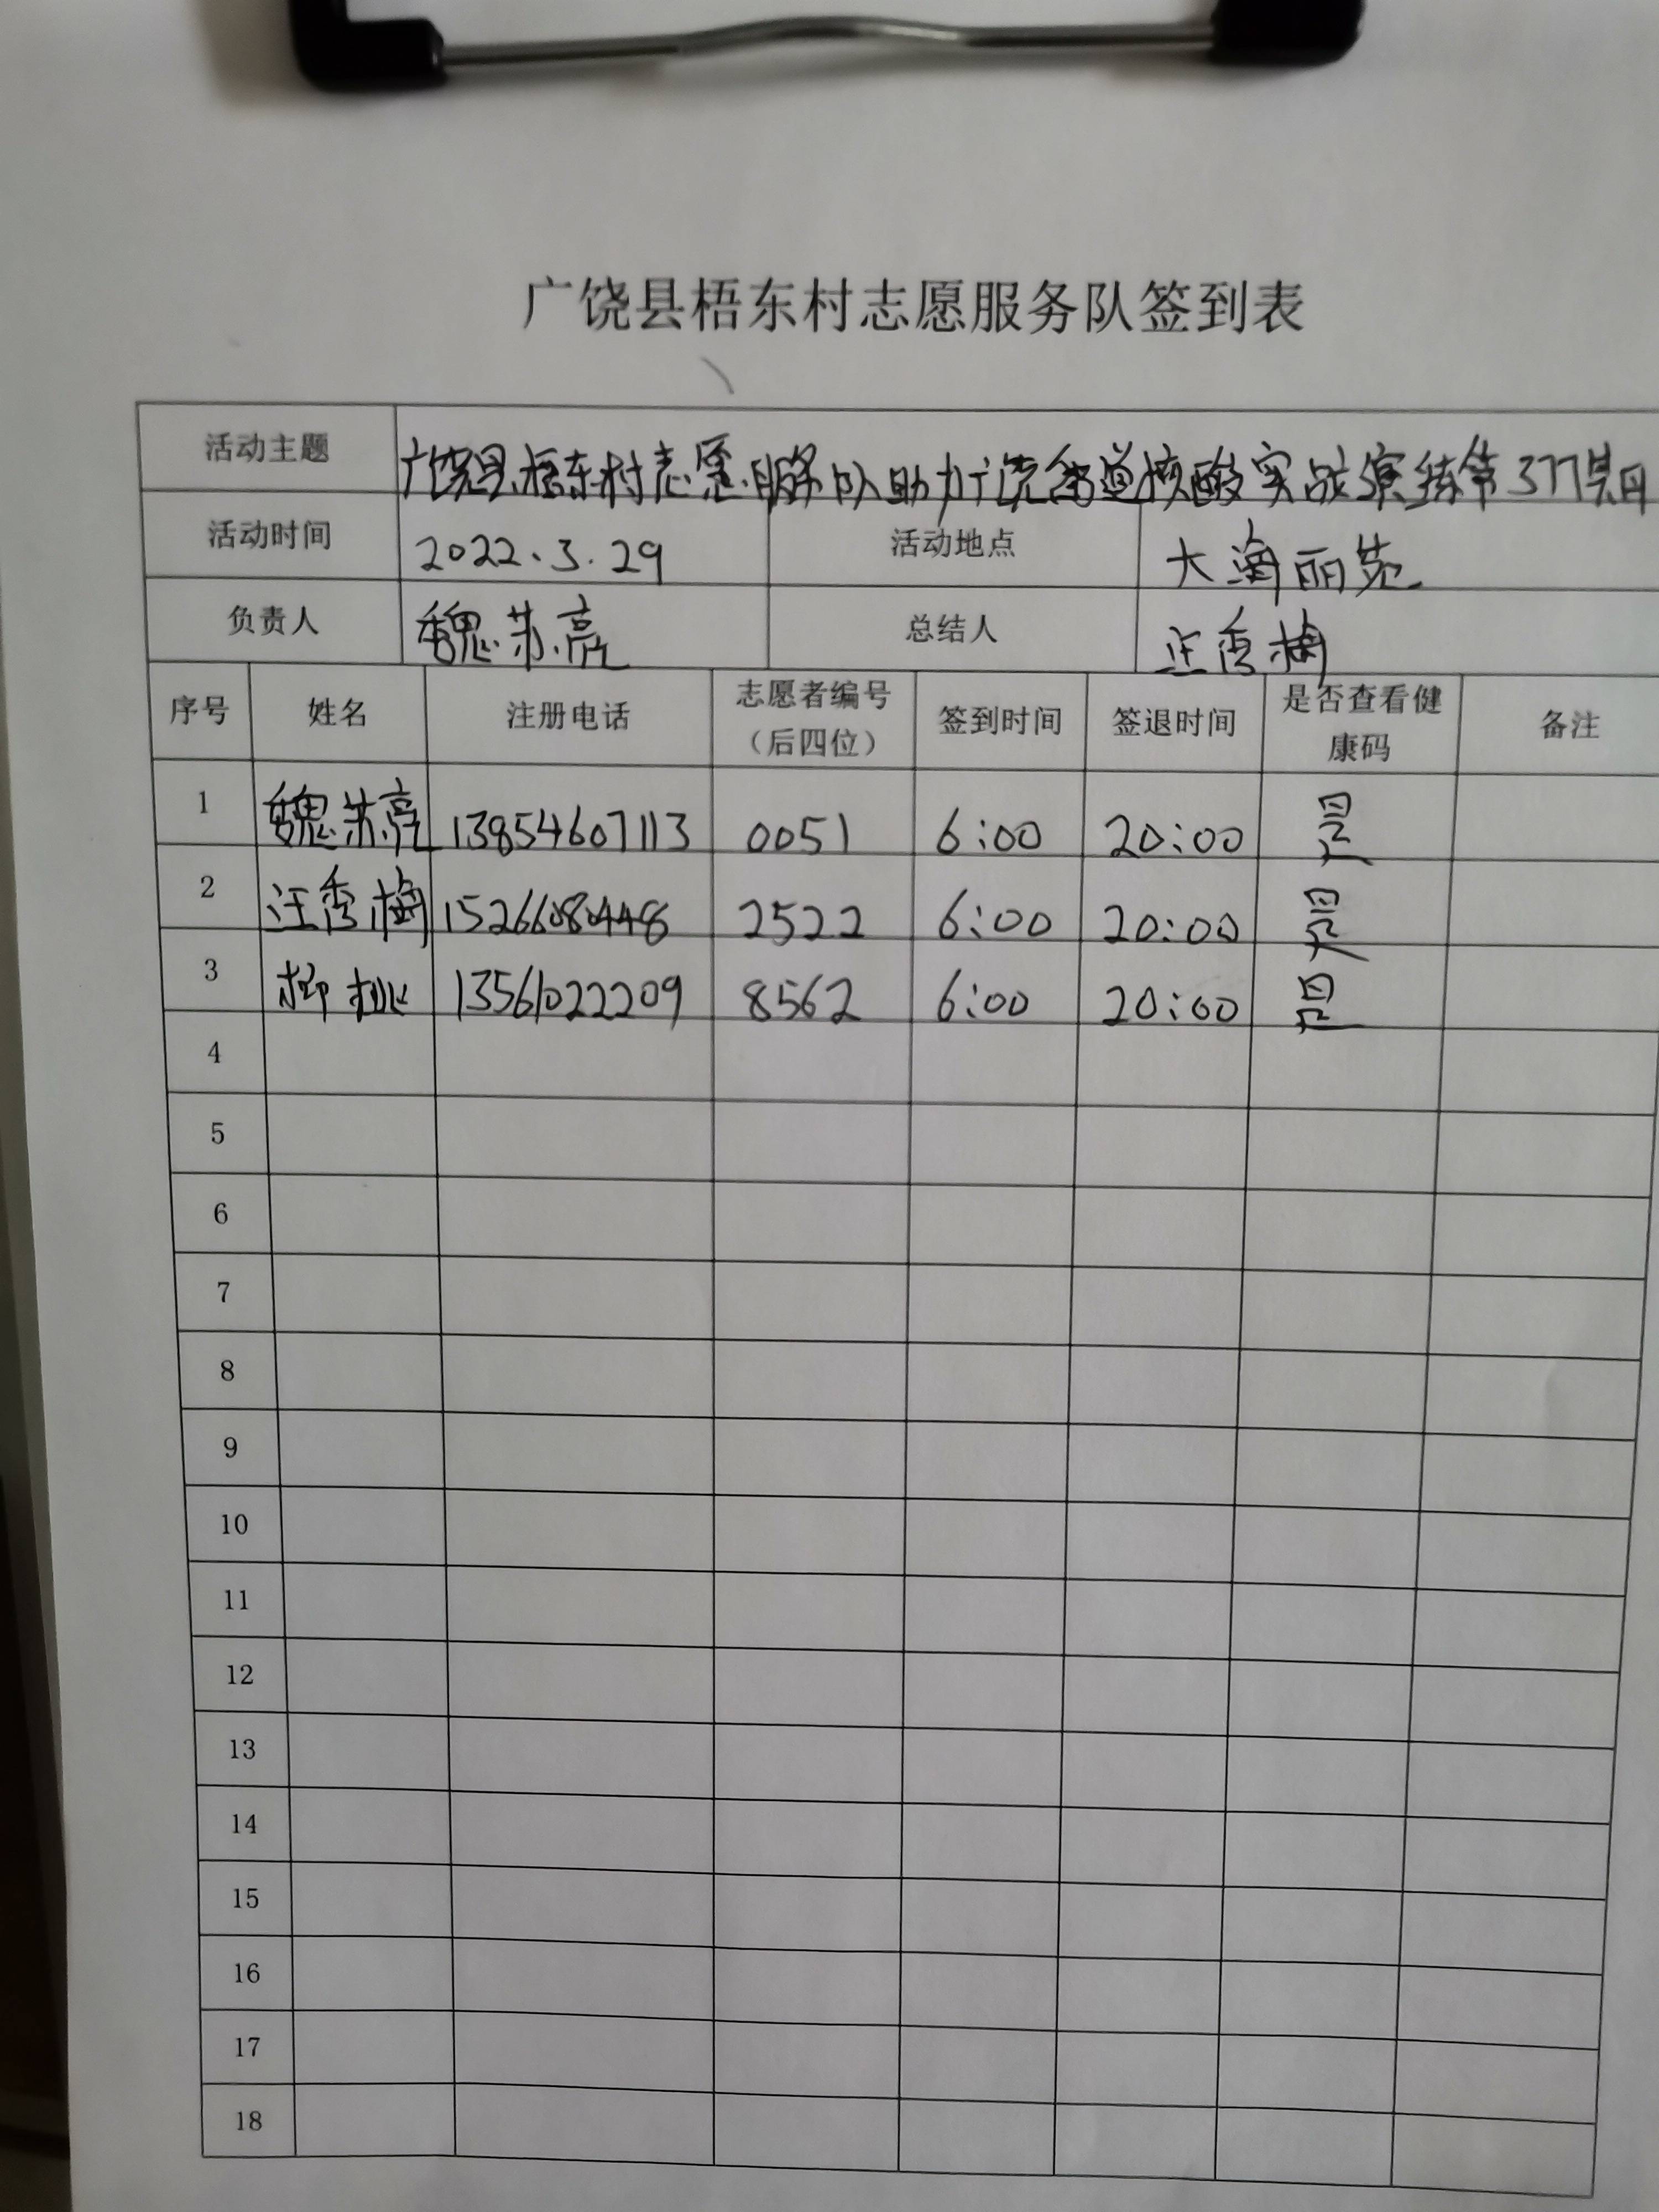 广饶县梧东村志愿服务队签到表
活动主题 广饶县梧东村志愿服务队助力广饶街道核酸实战演练第377期
活动时间 2022.3.29 活动地点 大海丽苑
负责人 魏苏亮 总结人 汪秀梅
序号 姓名 注册电话 志愿者编号（后四位） 签到时间 签退时间 是否查看健康码 备注
1 魏苏亮 13854607113 0051 6:00 20:00 是
2 汪秀梅 15266080448 2522 6:00 20:00 是
3 柳桃 13561022209 8562 6:00 20:00 是
4
5
6
7
8
9
10
11
12
13
14
15
16
17
18